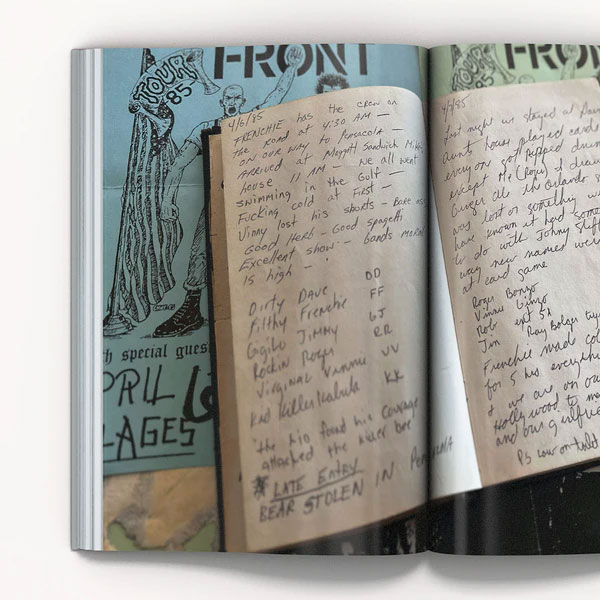 FRONT
TOUR
85
4/6/85
FRENCHIE has the crew on
the road at 4:30 AM —
on our way to Pensacola —
Arrived at Maggott Sandwich Mike's
house 11 AM — we all went
swimming in the Gulf —
Fucking cold at First —
Vinny lost his shorts - Bare ass
Good Herb - Good spagetti
Excellent show - bands moral
is high —
Dirty Dave DD
Filthy Frenchie FF
Gigilo Jimmy GJ
Rockin Roger RR
Virginal Vinnie VV
Kid Killer Kabula KK
the kid found his courage
attacked the killer bee
* LATE ENTRY
BEAR STOLEN IN
h special gues
PRIL 6
LAGES
FRONT
TOUR
85
Last night we stayed at
Aunts house played cards
everyone got ripped
except Me (Roger) I
Ginger Ale in Orlando
was lost or something
have known it had some
to do with Johny
way new named were
at card game
Roger Bonzo
Vinnie Ginzo
Rob ext 5x
Jim Ray Bolger
Frenchie made
for 5 hrs everything
+ we are on our
Hollywood to
and our girlfrie
PS told